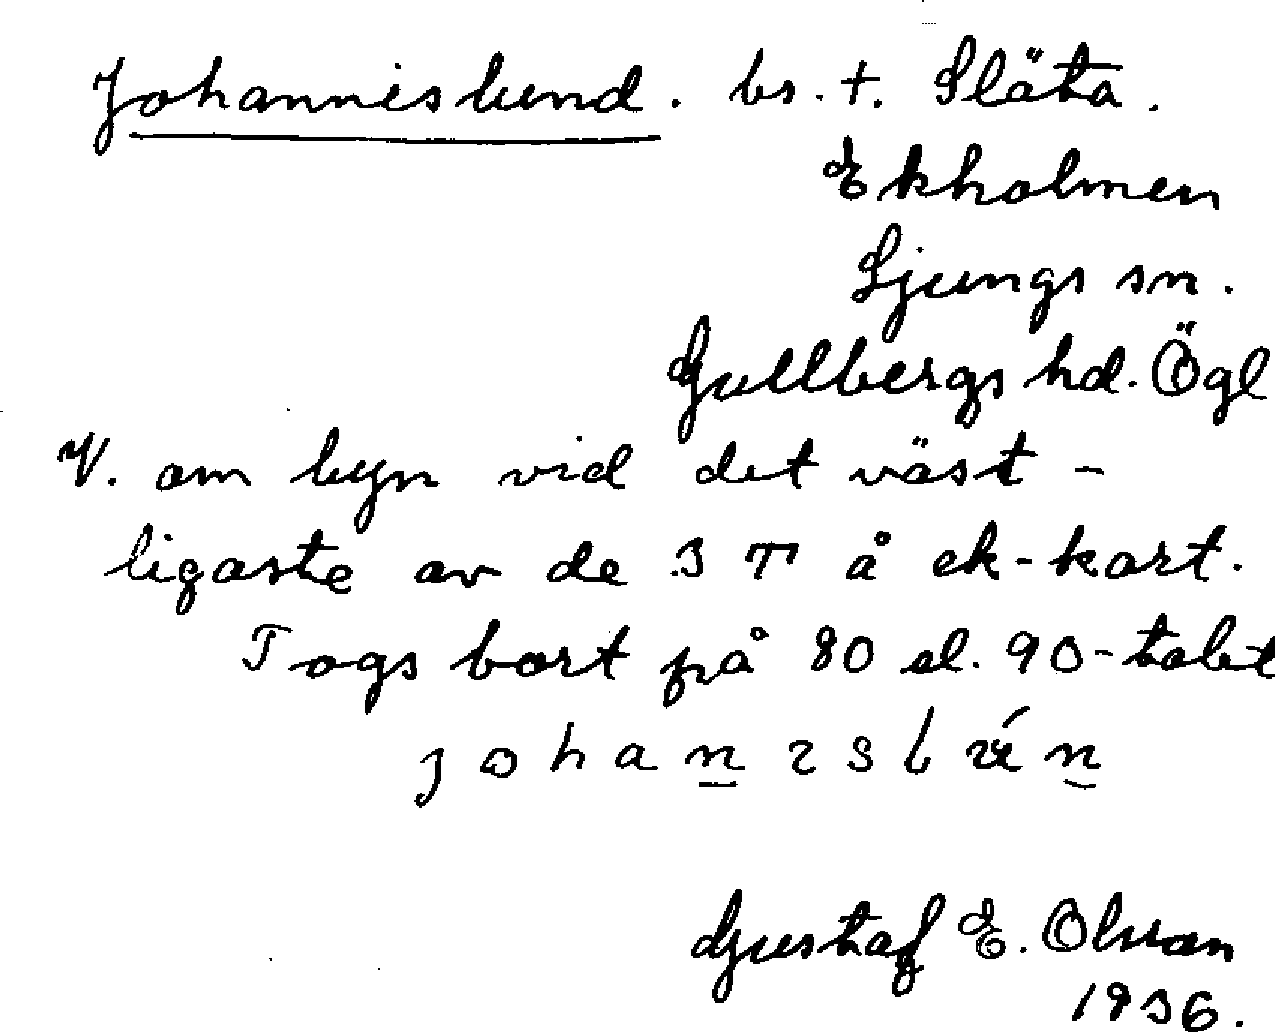 Johanneslund. bs. t. Släta.
Ekholmen
Ljungs sn.
Gullbergs hd. Ögl
V. om byn vid det väst-
ligaste av de 3 T å ek-kart.
Togs bort på 80 el. 90-talet
Gustaf E. Olsson
1936.